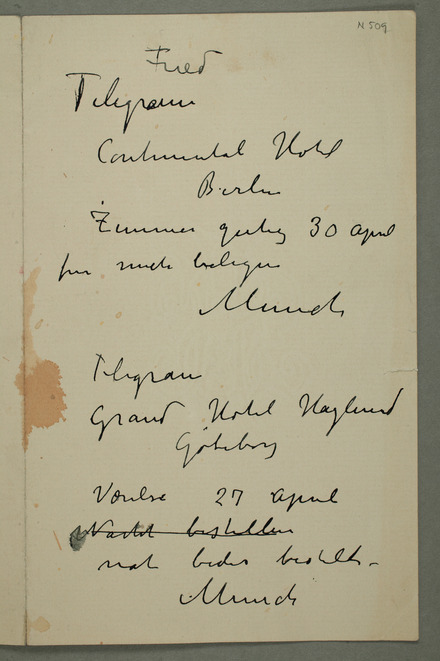 N 509
Fred
Telegram
Continental Hotel
Berlin
Zimmer 30 April
für mich belegen
Munch
Telegram
Grand Hotel Haglund
Göteborg
Værelse 27 April
Nacht bestellen
nat bedes bestilt.
Munch